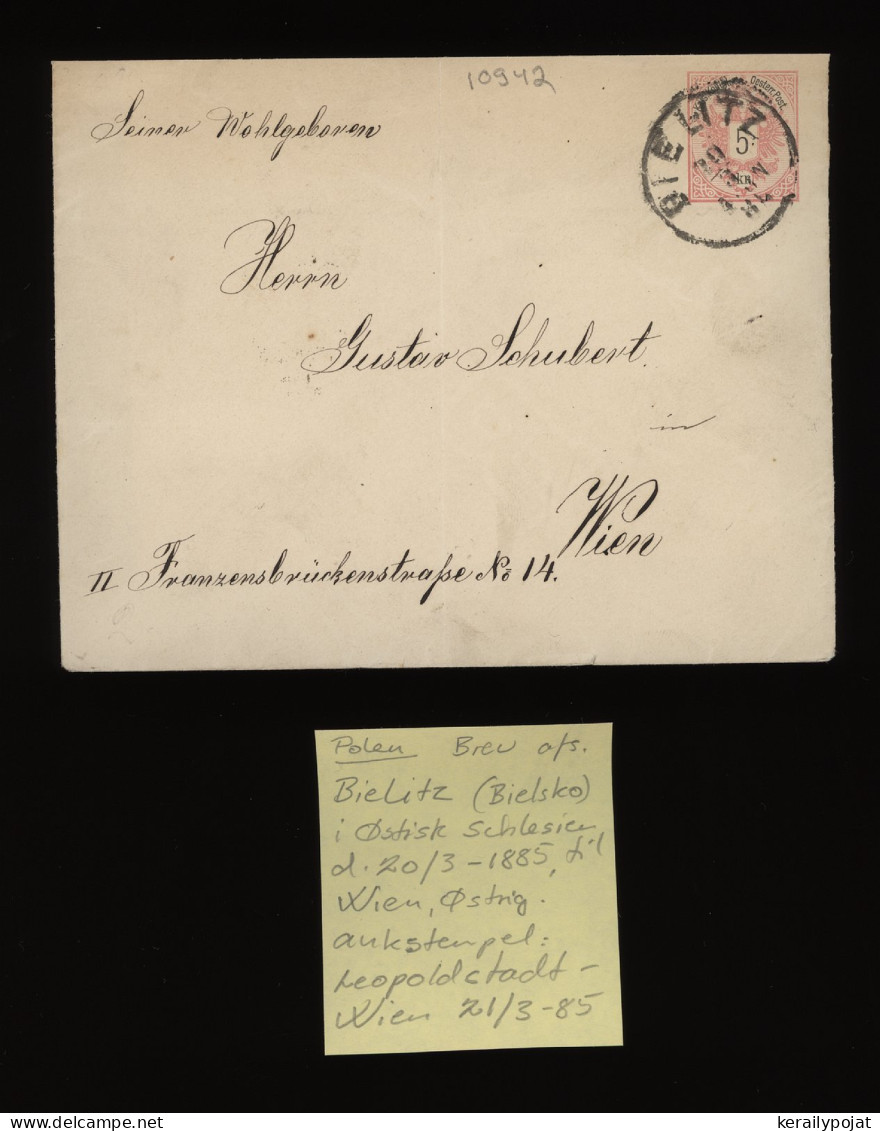 10942
Oesterr. Post.
5
KR.
BIELITZ
20
Seiner Wohlgeboren
Herrn
Gustav Schubert.
in
Wien
II Franzensbrückenstraße No 14.
2
Polen Brev afs.
Bielitz (Bielsko)
i Østisk Schlesien
d. 20/3-1885, til
Wien, Østrig.
ankstempel:
Leopoldstadt-
Wien 21/3-85
www.delcampe.net
kerailypojat